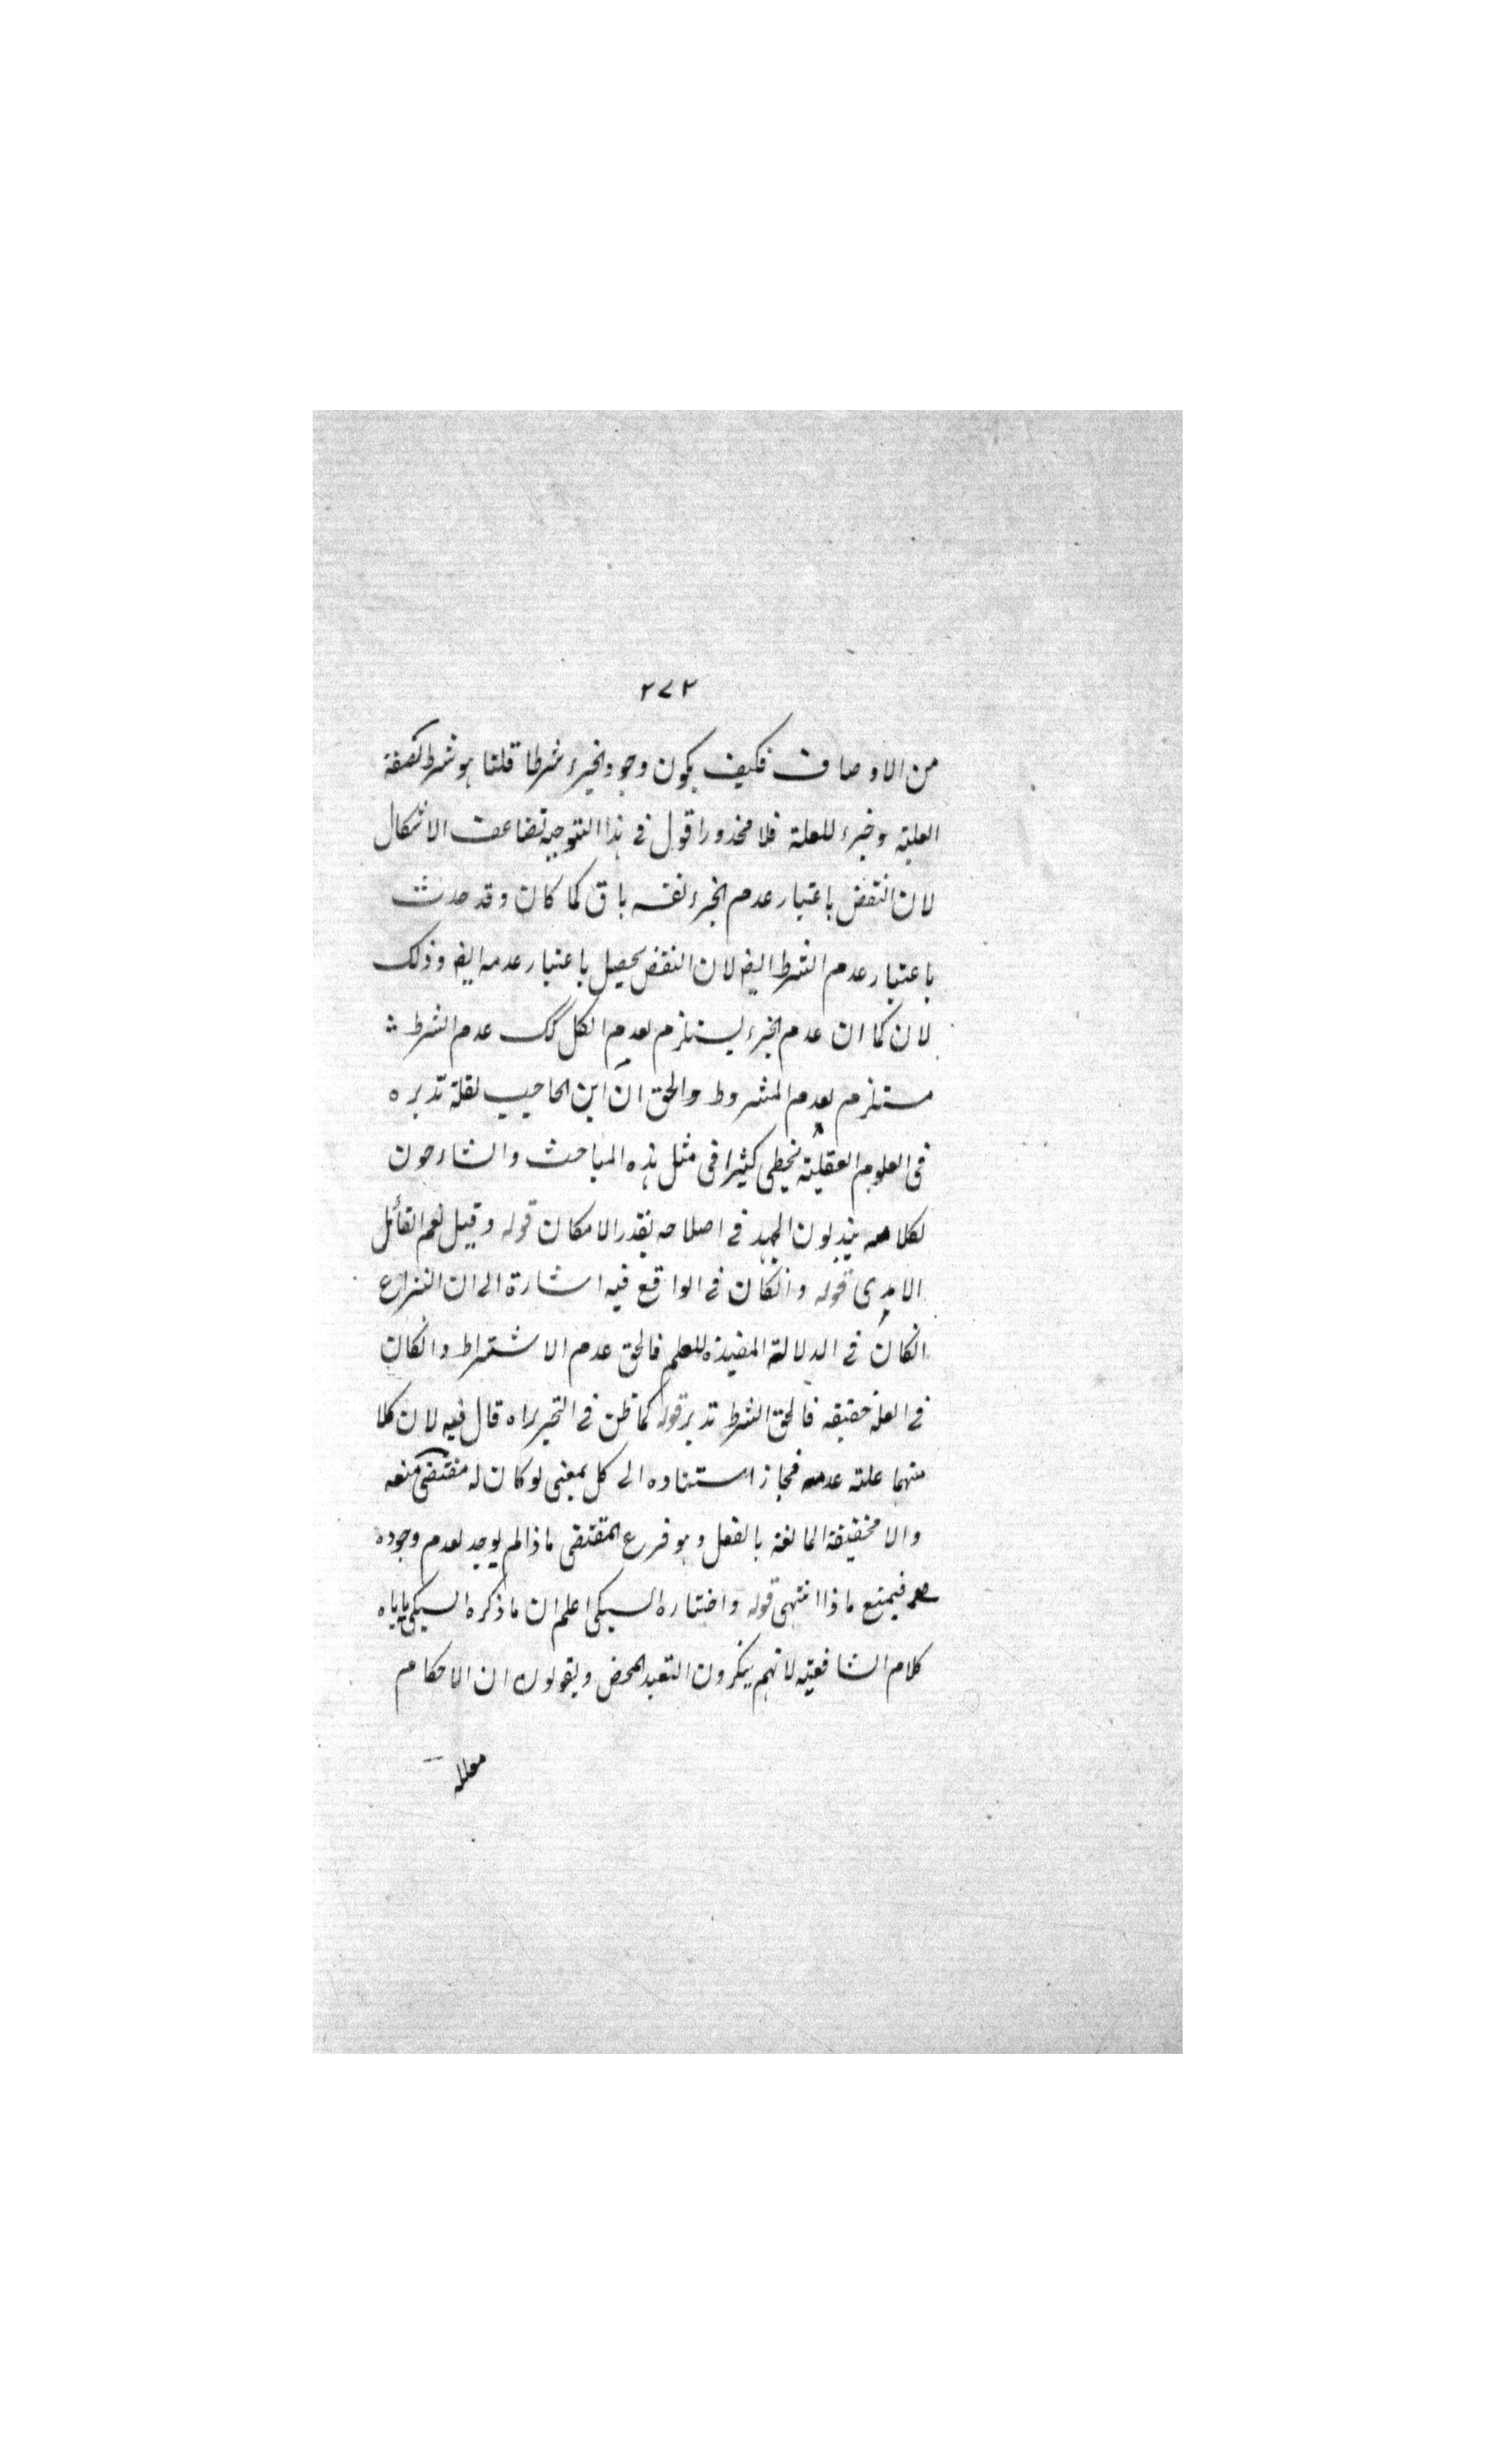 ٢٧٢
من الاوصاف فكيف يكون وجود الجزء شرطا قلنا هو شرط لصفة
العلية وجزء للعلة فلا محذور اقول في هذا التوجيه تضاعف الاشكال
لان النقض باعتبار عدم الجزء نفسه باق كما كان وقد حدث
باعتبار عدم الشرط ايضا لان النقض يحصل باعتبار عدمه ايضا وذلك
لان كما ان عدم الجزء يستلزم لعدم الكل كك عدم الشرط
مستلزم لعدم المشروط والحق ان ابن الحاجب لقلة تدبره
في العلوم العقلية يخطي كثيرا في مثل هذه المباحث والشارحون
لكلامه يبذلون الجهد في اصلاحه بقدر الامكان قوله وقيل نعم القائل
الامدى قوله وانكان في الواقع فيه اشارة الى ان النزاع
انكان في الدلالة المفيدة للعلم فالحق عدم الاشتراط وانكان
في العلة حقيقه فالحق الشرط تدبر قوله كما ظن في التحرير اه قال فيه لان كلا
منهما علته عدمه فجاز استناده الى كل بمعنى لو كان له مقتضى منعه
والا فحقيقة المانعة بالفعل وهو فرع المقتضى ماذا لم يوجد لعدم وجوده
فيمنع ماذا انتهى قوله واختاره السبكى اعلم ان ما ذكره السبكى ياباه
كلام الشافعية لانهم ينكرون التعبد المحض ويقولون ان الاحكام
معلله